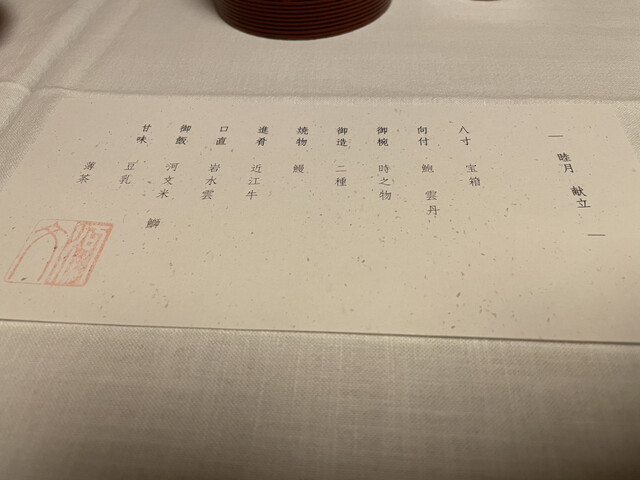 ― 睦月 献立 ―
八寸 宝箱
向付 鮑 雲丹
御椀 時之物
御造 二種
焼物 鰻
進肴 近江牛
口直 岩水雲
御飯 河文米 鰤
甘味 豆乳
薄茶